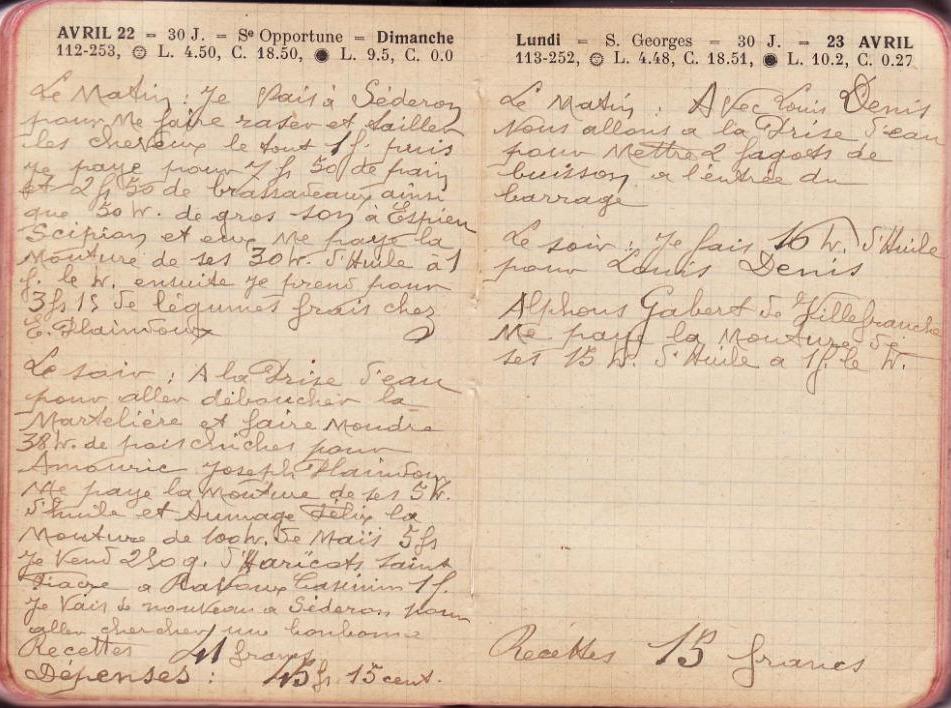 AVRIL 22 – 30 J. – Sᵉ Opportune – Dimanche
112-253, L. 4.50, C. 18.50, ● L. 9.5, C. 0.0
Le Matin : Je Vais à Séderon
pour Me faire raser et tailler
les cheveux le tout 1f. puis
je paye pour 7 fs 50 de pain
et 2 fs 50 de brassadeaux ainsi
que 50 K. de gros son a Espieu
Scipion et eux Me paye la
Mouture de ses 30 K. d'Huile à 1
f. le K. ensuite je prend pour
3 fs 15 de légumes frais chez
E. Plaindoux
Le soir : A la Prise d'eau
pour aller déboucher la
Martelière et faire Moudre
38 K. de pois chiches pour
Amouric Joseph Plaindoux
Me paye la Mouture de ses 5 K.
d'huile et Aumage Félix la
Mouture de 100 K. de Maïs 5 fs
Je Vend 250 g. d'Haricots saint
Fiacre a Ravoux Casimin 1 f.
Je Vais de nouveau a Séderon pour
aller chercher une bonbonne
Recettes 41 francs
Dépenses : 45 fs 15 cent.
Lundi – S. Georges – 30 J. – 23 AVRIL
113-252, L. 4.48, C. 18.51, ● L. 10.2, C. 0.27
Le Matin : Avec Louis Denis
Nous allons a la Prise d'eau
pour Mettre 2 fagots de
buisson a l'entrée du
barrage
Le soir : Je fais 16 K. d'Huile
pour Louis Denis
Alphons Gabert de Villefranche
Me paye la Mouture de
ses 15 K. d'Huile a 1 f. le K.
Recettes 15 francs